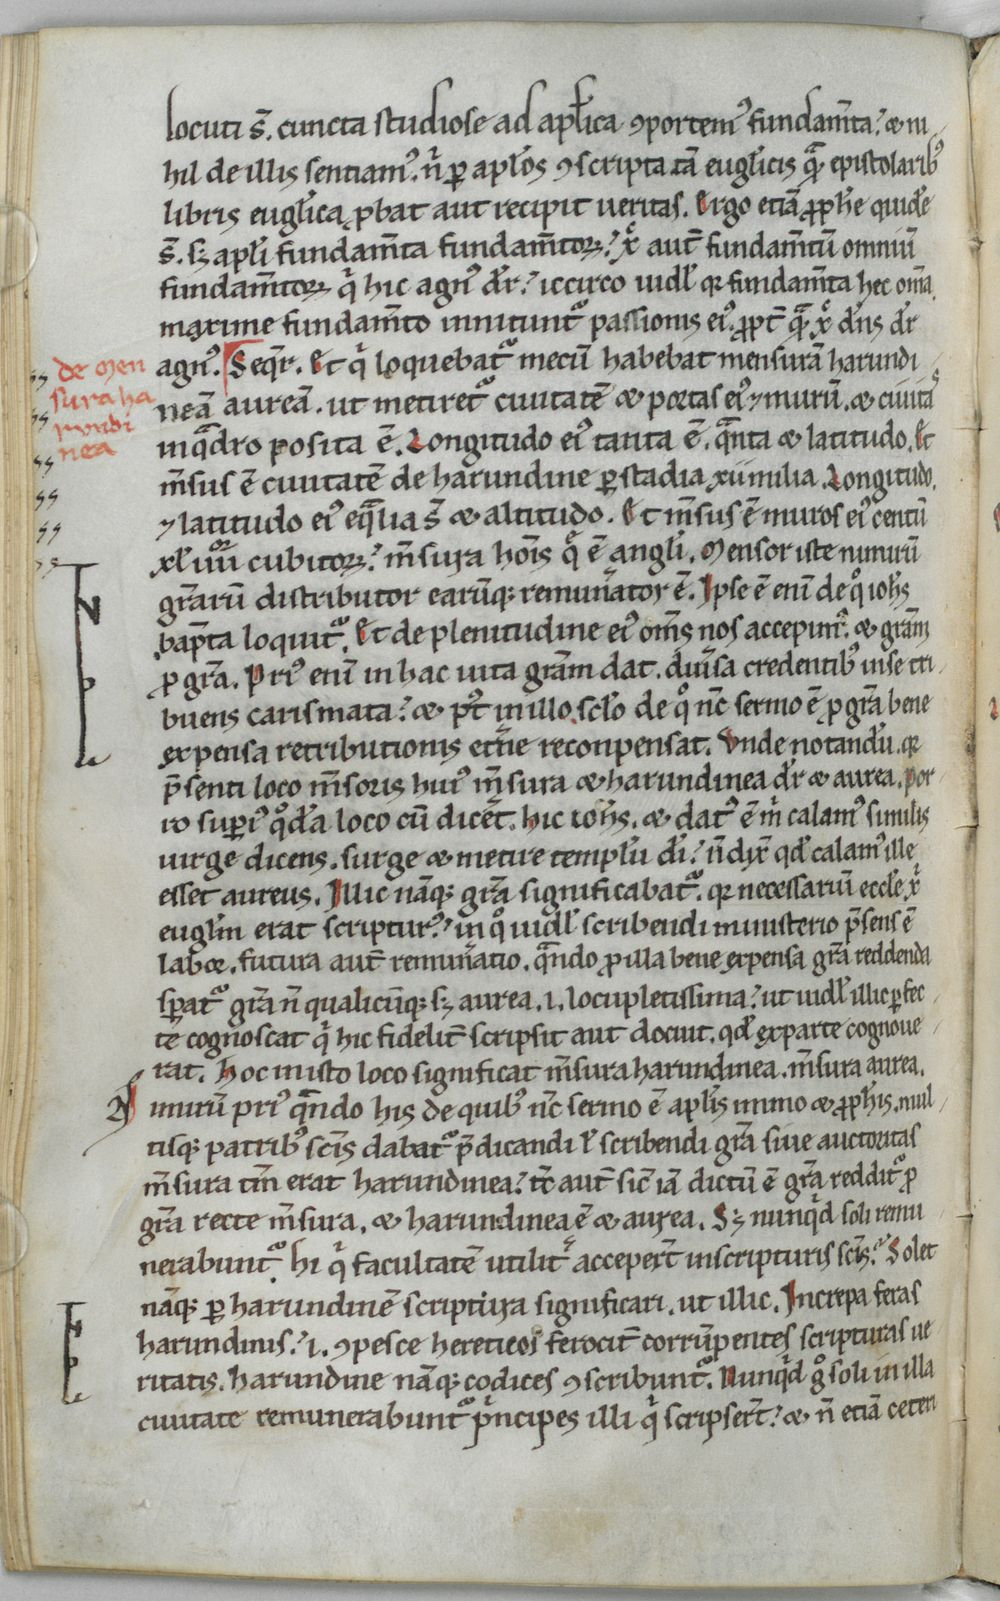 locuti s̄. cuncta studiose ad apl̄ica ꝯportem᷒ fundam̄ta.ˀ & ni
hil de illis sentiam᷒. n̄ ꝑ apl̄os ꝯscripta tā eugl̄icis quā epistolarib᷒
libris eugl̄ica ꝓbat aut recipit ueritas. Ergo etiā ꝓph̄e quidē
s̄. sꝫ apl̄i fundam̄ta fundam̄toꝝ.ˀ xp̄ī aut̄ fundam̄tū omniū
fundam̄toꝝ qͥ hic agn᷒ dr̄.ˀ iccirco uidl̄ꝫ qꝛ fundam̄ta hec om̄a
maxime fundam̄to innitunt᷑ passionis ei᷒. ꝓpt̄ quā xp̄ī dn̄s dr̄
agn᷒. Seqr̄. Et qͥ loquebat᷑ mecū habebat mensurā harundi
neā aureā. ut metiret᷑ ciuitatē & portas ei᷒ ⁊ murū. & ciuitas
in qᵃdro posita ē. Longitudo ei᷒ tanta ē. qᵃnta & latitudo. Et
m̄sus ē ciuitatē de harundine ꝑ stadia xii milia. Longitudo.
⁊ latitudo ei᷒ eqᵃlia s̄ & altitudo. Et m̄sus ē muros ei᷒ centū
xl iiii cubitoꝝ.ˀ m̄sura hoīs qͤ ē angl̄i. Mensor iste nimirū
gr̄arū distributor earūqꝫ remun̄ator ē. Ipse ē eni de qͦ ioh̄s
bap̄ta loquit᷑. Et de plenitudine ei᷒ om̄s nos accepim᷒. & gr̄am
ꝓ gr̄a. Pri᷒ eni in hac uita gr̄am dat. diuͥsa credentib᷒ in se tri
buens carismata.ˀ & pt̄ in illo scl̄o de qͦ nc̄ sermo ē ꝓ gr̄a bene
expensa retributionis etn̄e reconpensat. Vnde notandū. qꝛ
p̄senti loco m̄soris hui᷒ m̄sura & harundinea dr̄ & aurea. Por
ro suꝑi᷒ qͦdā loco cū dicet̄. hic ioh̄s. & dat᷒ ē m̄ calam᷒ similis
uirge dicens. surge & metire templū dī.ˀ n̄ dix̄ qd̄ calam᷒ ille
esset aureus. Illic nāqꝫ gr̄a significabat᷑. qꝛ necessariū eccl̄e xp̄ī
eugl̄m erat scriptur᷒.ˀ in qͦ uidl̄ꝫ scribendi ministerio p̄sens ē
labor. futura aut̄ remun̄atio. qᵃndo ꝓ illa bene expensa gr̄a reddenda
sꝑat᷑ gr̄a n̄ qualicūqꝫ sꝫ aurea .i. locupletissima.ˀ ut uidl̄ꝫ illic ꝑfec
te cognoscat qͥ hic fidelit̄ scripsit aut docuit. qd̄ ex parte cognoue
rat. Hoc in isto loco significat m̄sura harundinea. m̄sura aurea.
Nimirū pri᷒ qᵃndo his de quib᷒ nc̄ sermo ē apl̄is immo & ꝓph̄is. mul
tisqꝫ patrib᷒ sc̄is dabat᷑ p̄dicandi l̄ scribendi gr̄a siue auctoritas
m̄sura tm̄ erat harundinea.ˀ tc̄ aut̄ sic̄ iā dictū ē gr̄a reddit᷑ ꝓ
gr̄a recte m̄sura. & harundinea ē & aurea. Sꝫ nunqͥd soli remu
nerabunt᷑. hi qͥ facultatē utilit̄ acceper̄t in scripturis sc̄is.ˀ Solet
nāqꝫ ꝑ harundinē scriptura significari. ut illic. Increpa feras
harundinis.ˀ .i. ꝯpesce hereticos ferocit̄ corrūpentes scripturas ue
ritatis. harundine nāqꝫ codices ꝯscribunt᷑. Nunqͥd gͦ soli in illa
ciuitate remunerabunt᷑ pͥncipes illi qͥ scripser̄t.ˀ & n̄ etiā ceteri
de men
sura ha
rundi
nea